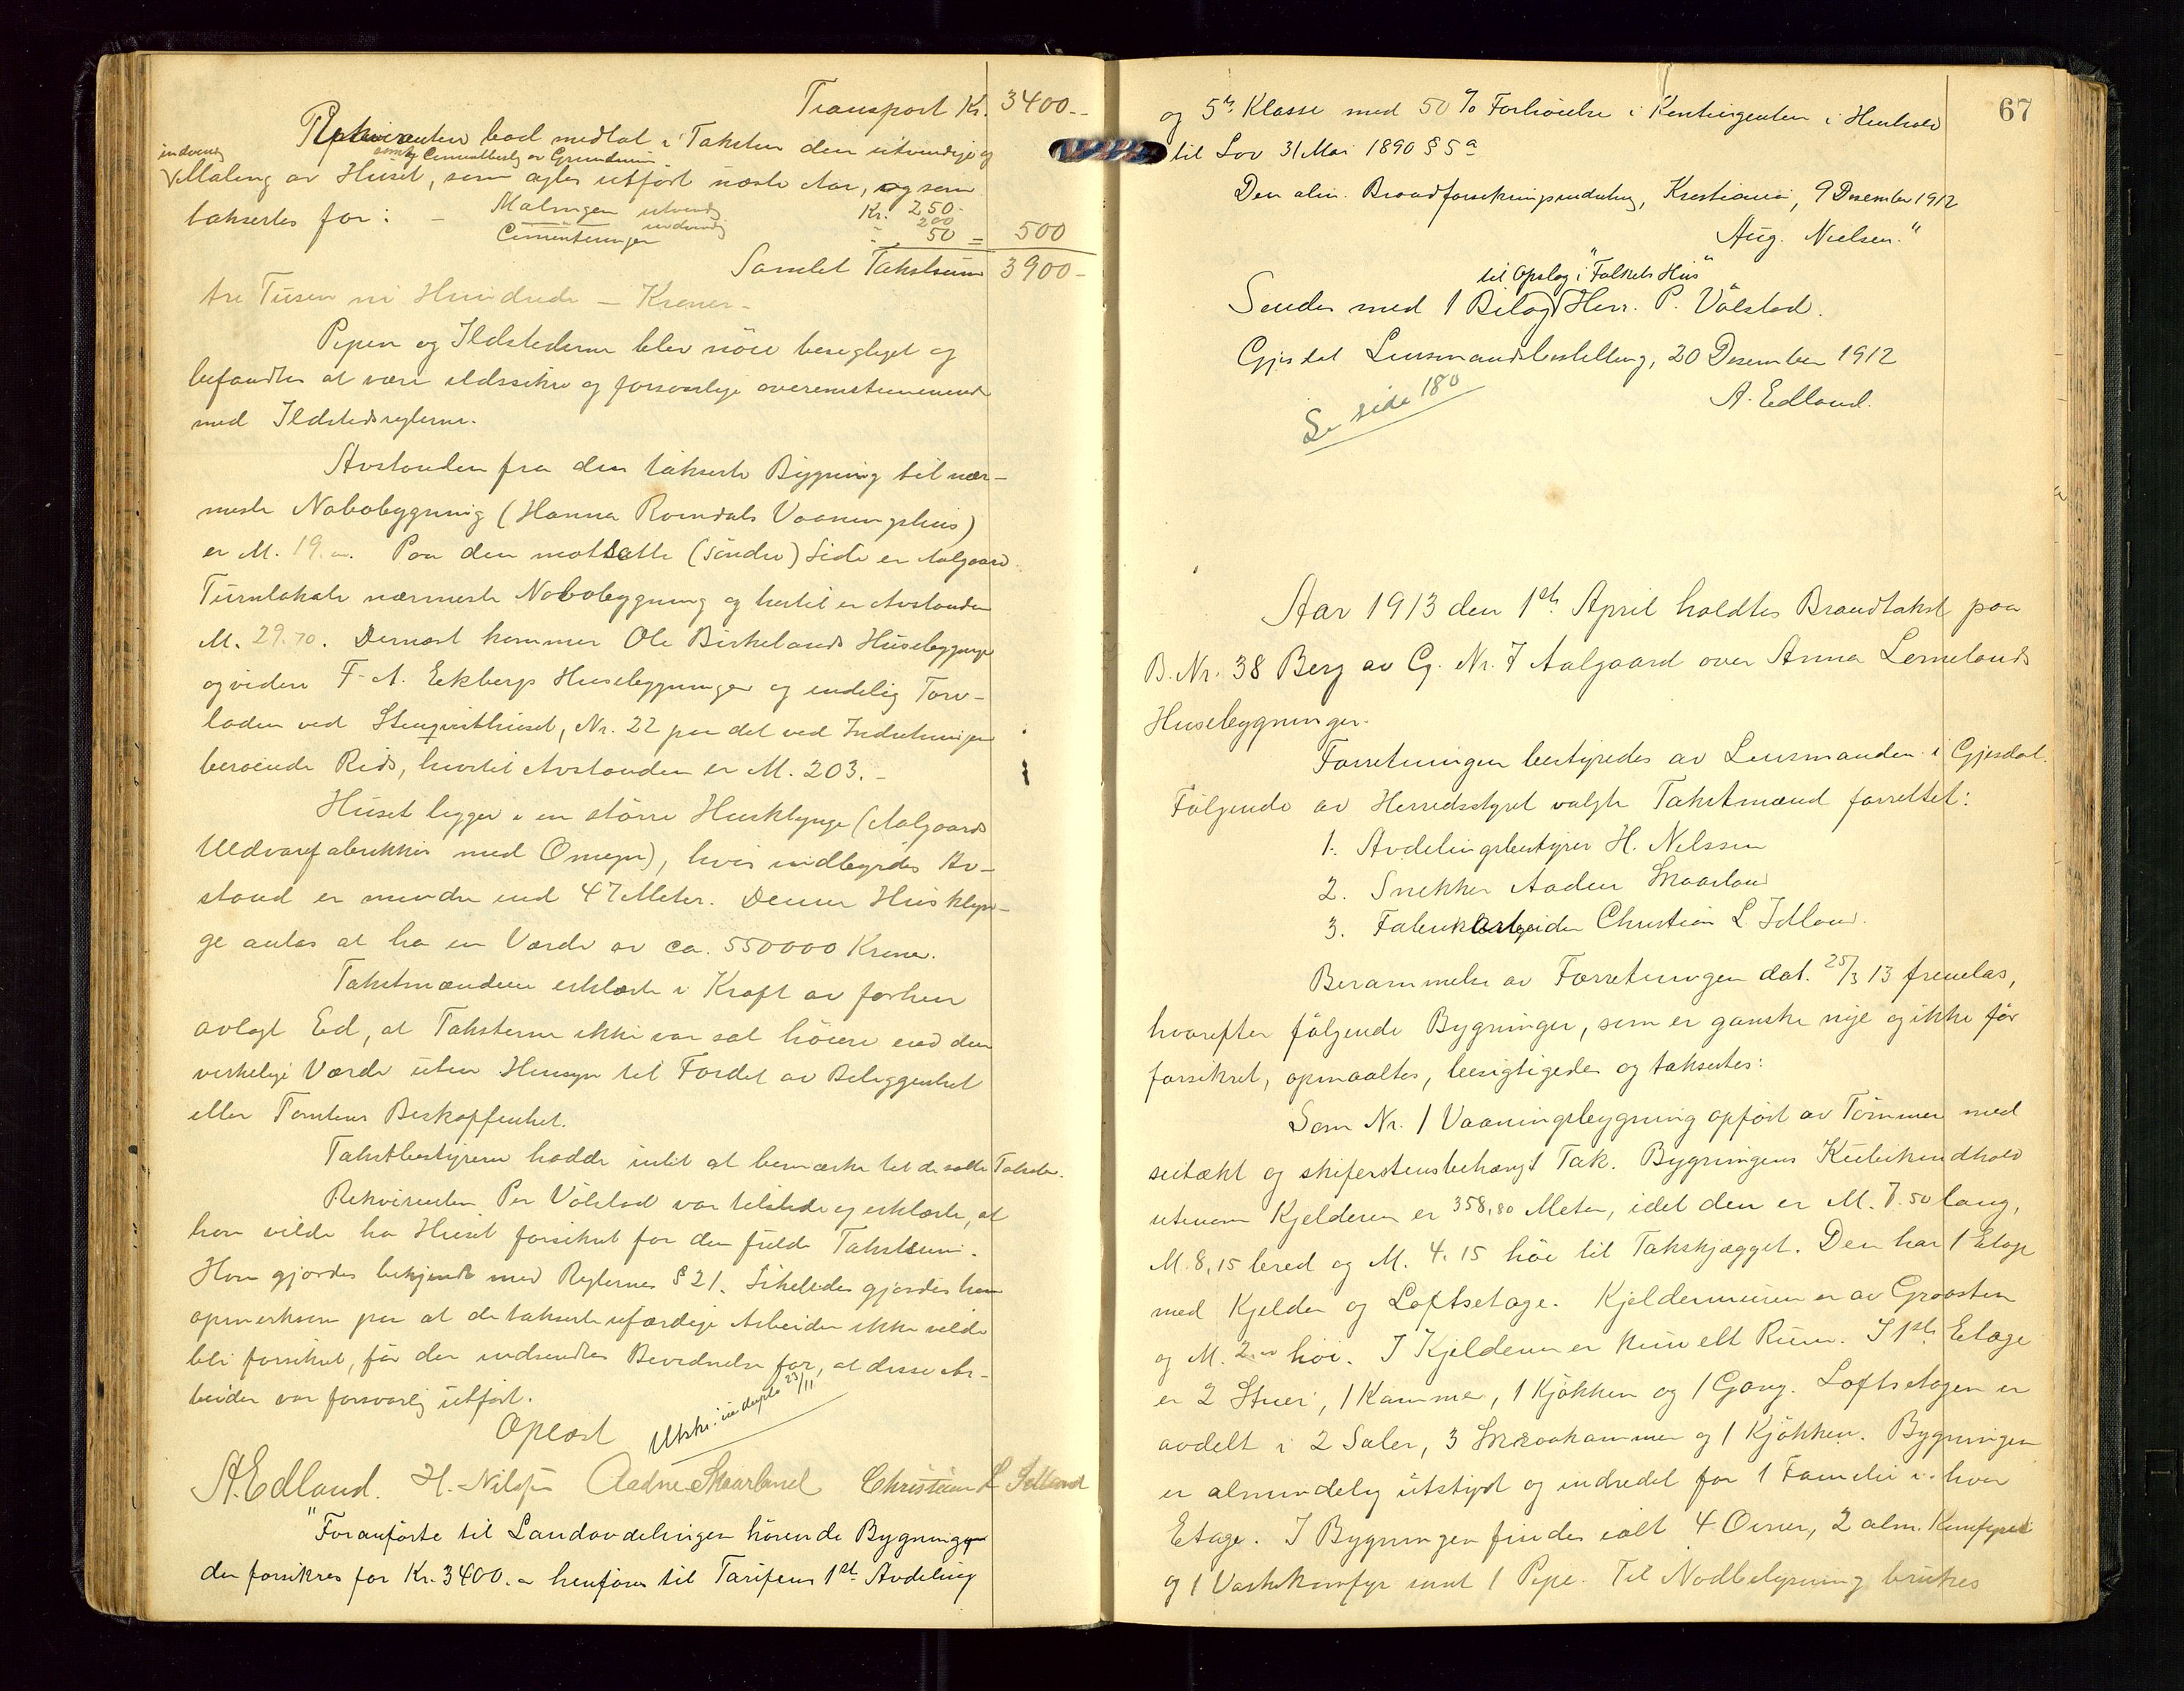 Transport Kr. 3400.-
Rekvirenten bad medtat i Taksten den utvendige og
indvendig samt Cementering av Grundmuren
Maling av Huset, som agtes utført næste Aar, og som
taksertes for: - Malingen utvendig Kr. 250.-
indvendig 200
Cementeringen " 50 = 500
Samlet Takstsum 3900-
tre Tusen ni Hundrede - Kroner-
Pipen og Ildstederne blev nöie besigtiget og
befandtes at være ildssikre og forsvarlige overensstemmende
med Ildstedsreglerne.
Avstanden fra den takserte Bygning til nær-
meste Nabobygning (Hanna Rovndals Vaaningshus)
er M. 19.00. Paa den motsatte (söndre) Side er Aalgaard
Turnlokale nærmeste Nabobygning og hertil er Avstanden
M. 29.70. Dernæst kommer Ole Birkelands Husebygninger
og videre F. A. Ekbergs Husebygninger og endelig Torv-
laden ved Stenqvisthuset, Nr. 22 paa det ved Indretningen
beroende Rids, hvortil Avstanden er M. 203.-
Huset ligger i en större Husklynge (Aalgaards
Uldvarefabrikker med Omegn), hvis indbyrdes Av-
stand er mindre end 47 Meter. Denne Husklyn-
ge antas at ha en Værdi av ca. 550000 Kroner.
Takstmændene erklærte i Kraft av forhen
avlagt Ed, at Taksterne ikke var sat höiere end den
virkelige Værdi uten Hensyn til Fordel av Beliggenhet
eller Tomtens Beskaffenhet.
Takstbestyreren hadde intet at bemærke til de satte Takster.
Rekvirenten Per Völstad var tilstede og erklærte, at
han vilde ha Huset forsikret for den fulde Takstsum.
Han gjordes bekjendt med Reglernes § 21. Likeledes gjordes han
opmerksom paa at de takserte ufærdige Arbeider ikke vilde
bli forsikret, för der indsendtes Bevidnelse for, at disse Ar-
beider var forsvarlig utfört.
Oplæst
Utskr. inds 23/11
A. Edland. H. Nilssen Aadne Skaarland Christian L Idland
"Foranförte til Landavdelingen hörende Bygninger
der forsikres for Kr. 3400.00 henföres til Tarifens 1ste Avdeling
67
og 5te Klasse med 50 % Forhöielse i Kontingenten i Henhold
til Lov 31 Mai 1890 § 5a
Den alm. Brandforsikringsindretning, Kristiania, 9 Desember 1912
Aug. Nielsen."
til Opslag i "Folkets Hus"
Sendes med 1 Bilag Herr. P. Völstad.
Gjesdal Lensmandsbestilling, 20 Desember 1912
A. Edland.
Se side 180
Aar 1913 den 1ste April holdtes Brandtakst paa
B. Nr. 38 Berg av G. Nr. 7 Aalgaard over Anna Lomelands
Husebygninger.
Forretningen bestyredes av Lensmanden i Gjesdal.
Fölgende av Herredsstyret valgte Takstmænd forrettet:
1. Avdelingsbestyrer H. Nilssen
2. Snekker Aadne Skaarland
3. Fabrikarbeider Christian L. Idland.
Berammelse av Forretningen dat. 25/3 13 fremlas,
hvorefter fölgende Bygninger, som er ganske nye og ikke för
forsikret, opmaaltes, besigtigedes og taksertes:
Som Nr. 1 Vaaningsbygning opfört av Tömmer med
sutækt og skiferstensbehængt Tak. Bygningens Kubikindhold
utenom Kjelderen er 358,80 Meter, idet den er M. 7.50 lang,
M. 8,15 bred og M. 4.15 höi til Takskjægget. Den har 1 Etage
med Kjelder og Loftsetage. Kjeldermuren er av Graasten
og M. 2.00 höi. I Kjelderen er kun ett Rum. I 1ste Etage
er 2 Stuer, 1 Kammer, 1 Kjökken og 1 Gang. Loftsetagen er
avdelt i 2 Saler, 3 Skraakammer og 1 Kjökken. Bygningen
er almindelig utstyrt og indredet for 1 Familie i hver
Etage. I Bygningen findes ialt 4 Ovner, 2 alm. Komfyrer
og 1 Vaskekomfyr samt 1 Pipe. Til Nødbelysning brukes